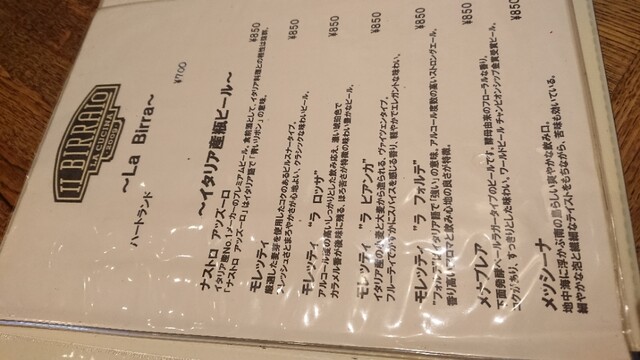 IL BIRRAIO
LA CUCINA
～La Birra～
ハートランド ¥700
～イタリア産瓶ビール～
ナストロ アッズーロ ¥850
イタリア産No.1メーカーのプレミアムビール。食前酒として、イタリア料理との相性は抜群。
「ナストロ アッズーロ」はイタリア語で「青いリボン」の意味。
モレッティ ¥850
厳選した麦芽を使用したコクのあるピルスナータイプ。
フレッシュさとまろやかさが心地よい、クラシックな味わいビール。
モレッティ “ラ ロッサ” ¥850
アルコール度の高いしっかりとした飲み応え。濃い琥珀色で
カラメル香が後味に残る、ほろ苦さが特徴の味わい豊かなビール。
モレッティ “ラ ビアンカ” ¥850
イタリア産の小麦と大麦から造られる、ヴァイツェンタイプ。
フルーティでかすかにスパイスを感じる香り、軽やかでエレガントな味わい。
モレッティ “ラ フォルテ” ¥850
“フォルテ”はイタリア語で「強い」の意味。アルコール度数の高いストロングエール。
香り高いアロマと飲み心地の良さが特徴。
メナブレア ¥850
下面発酵ペールラガータイプのビールです。酵母由来のフローラルな香り。
コクがあり、すっきりとした味わい。ワールドビールチャンピオンシップ金賞受賞ビール。
メッシーナ ¥850
地中海に浮かぶ南の島らしい爽やかな飲み口。
細やかな泡と繊細なテイストをもちながら、苦味も効いている。